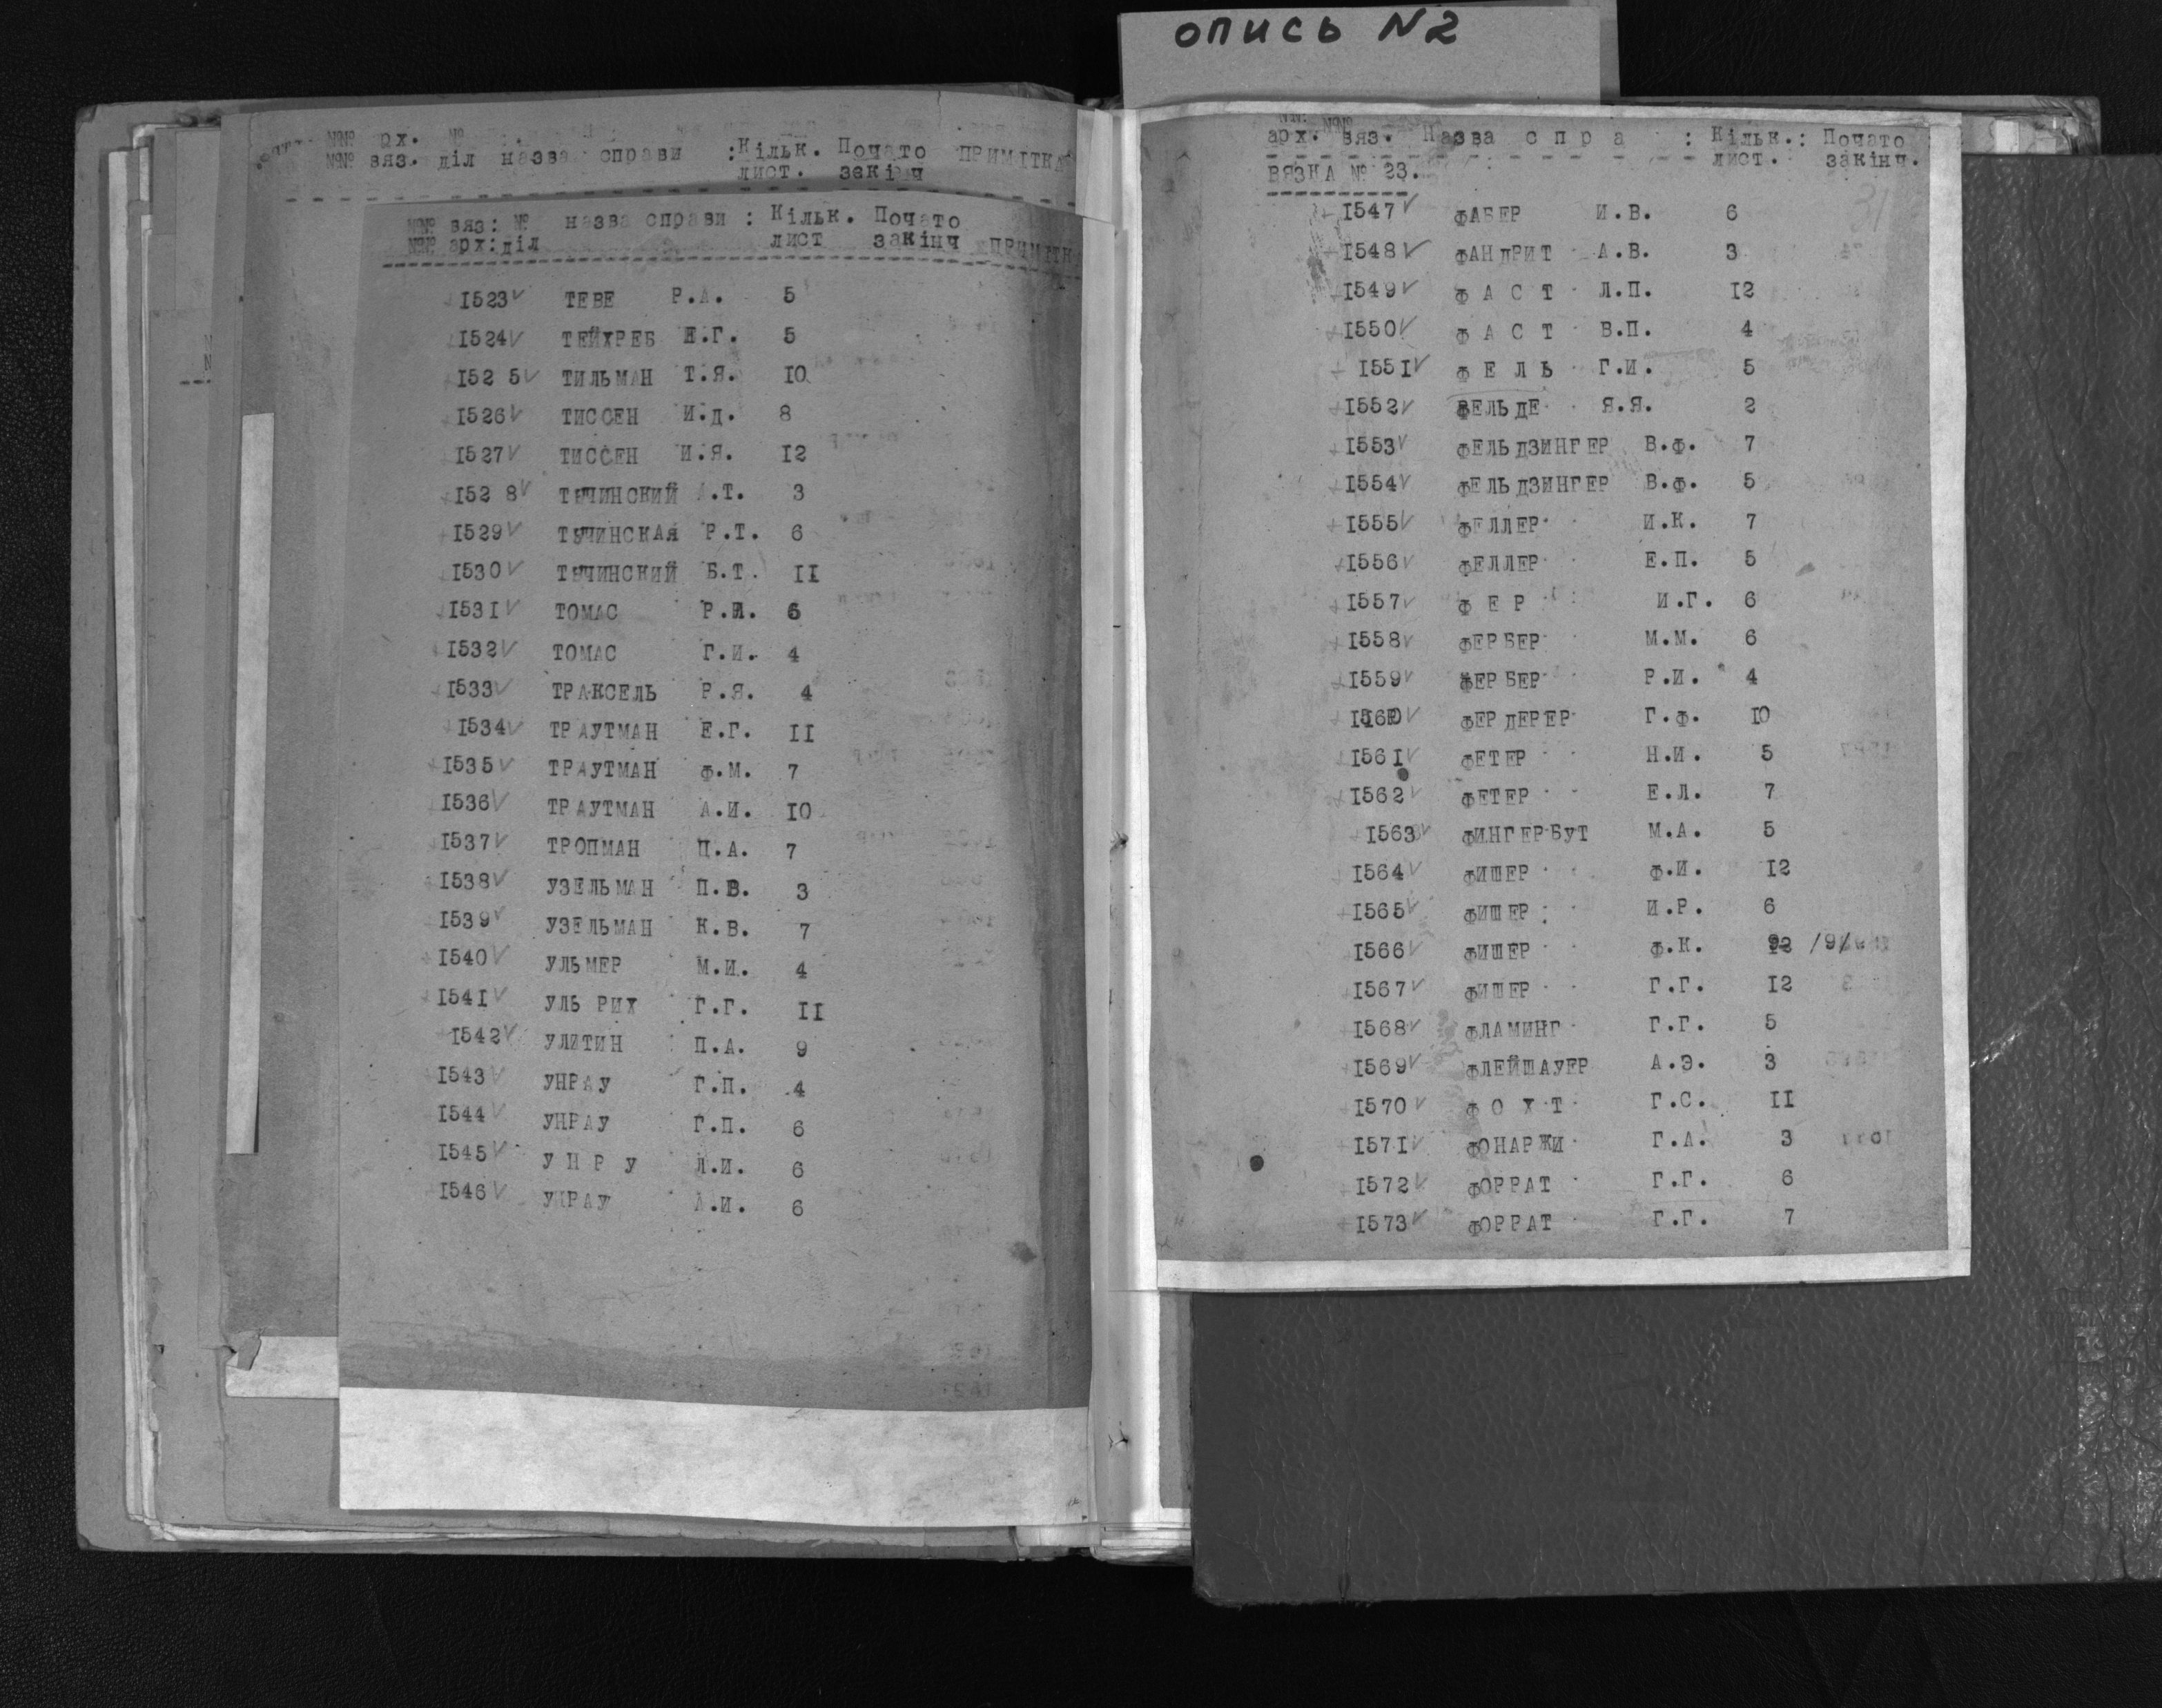 опись N2
№№ рх. №
№№ вяз. діл назва справи :Кільк. Почато ПРИМІТКА
лист. закі ч
№№ вяз: № назва справи : Кільк. Почато
№№ арх:діл лист закінч ПРИМІТК
1523 ТЕВЕ Р.А. 5
1524 ТЕЙХРЕБ Г. 5
152 5 ТИЛЬМАН Т.Я. 10
1526 ТИССЕН И.Д. 8
1527 ТИССЕН И.Я. 12
152 8 ТЫЧИНСКИЙ А.Т. 3
1529 ТЫЧИНСКАЯ Р.Т. 6
1530 ТЫЧИНСКИЙ Б.Т. 11
1531 ТОМАС Р.И. 6
1532 ТОМАС Г.И. 4
1533 ТРАКСЕЛЬ Р.Я. 4
1534 ТРАУТМАН Е.Г. 11
1535 ТРАУТМАН Ф.М. 7
1536 ТРАУТМАН А.И. 10
1537 ТРОПМАН П.А. 7
1538 УЗЕЛЬМАН П.В. 3
1539 УЗЕЛЬМАН К.В. 7
1540 УЛЬМЕР М.И. 4
1541 УЛЬ РИХ Г.Г. 11
1542 УЛИТИН П.А. 9
1543 УНРАУ Г.П. 4
1544 УНРАУ Г.П. 6
1545 У Н Р У Л.И. 6
1546 УНРАУ А.И. 6
№№ №№
арх. вяз. Назва с п р а : Кільк.: Почато
лист. закінч.
ВЯЗКА № 23.
31
1547 ФАБЕР И.В. 6
1548 ФАНДРИТ А.В. 3
1549 Ф А С Т Л.П. 12
1550 Ф А С Т В.П. 4
1551 Ф Е Л Ь Г.И. 5
1552 ФЕЛЬДЕ Я.Я. 2
1553 ФЕЛЬДЗИНГЕР В.Ф. 7
1554 ФЕЛЬДЗИНГЕР В.Ф. 5
1555 ФЕЛЛЕР И.К. 7
1556 ФЕЛЛЕР Е.П. 5
1557 Ф Е Р И.Г. 6
1558 ФЕРБЕР М.М. 6
1559 ФЕРБЕР Р.И. 4
1560 ФЕРДЕРЕР Г.Ф. 10
1561 ФЕТЕР Н.И. 5
1562 ФЕТЕР Е.Л. 7
1563 ФИНГЕРБУТ М.А. 5
1564 ФИШЕР Ф.И. 12
1565 ФИШЕР И.Р. 6
1566 ФИШЕР Ф.К. 12 /9/
1567 ФИШЕР Г.Г. 12
1568 ФЛАМИНГ Г.Г. 5
1569 ФЛЕЙШАУЕР А.Э. 3
1570 Ф О Х Т Г.С. 11
1571 ФОНАРЖИ Г.А. 3
1572 ФОРРАТ Г.Г. 6
1573 ФОРРАТ Г.Г. 7